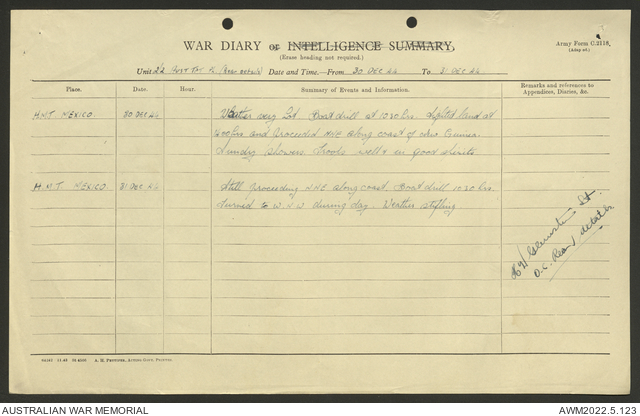 WAR DIARY or INTELLIGENCE SUMMARY.
Army Form C.2118.
(Erase heading not required.)
(Adap ed.)
Unit 2/2 (Rear Details) Date and Time.—From 30 DEC 44 To 31 DEC 44
Place. Date. Hour. Summary of Events and Information. Remarks and references to
Appendices, Diaries, &c.
H.M.T. MEXICO. 30 DEC 44 Weather very hot. Boat drill at 1030 hrs. Sighted land at
1200 hrs and proceeded NNE along coast of New Guinea.
Sundry showers. Troops well & in good spirits
H.M.T. MEXICO. 31 DEC 44 Still proceeding NNE along coast. Boat drill 1030 hrs.
Turned to W.N.W during day. Weather stifling
Lt
O.C. Rear details.
AUSTRALIAN WAR MEMORIAL
AWM2022.5.123